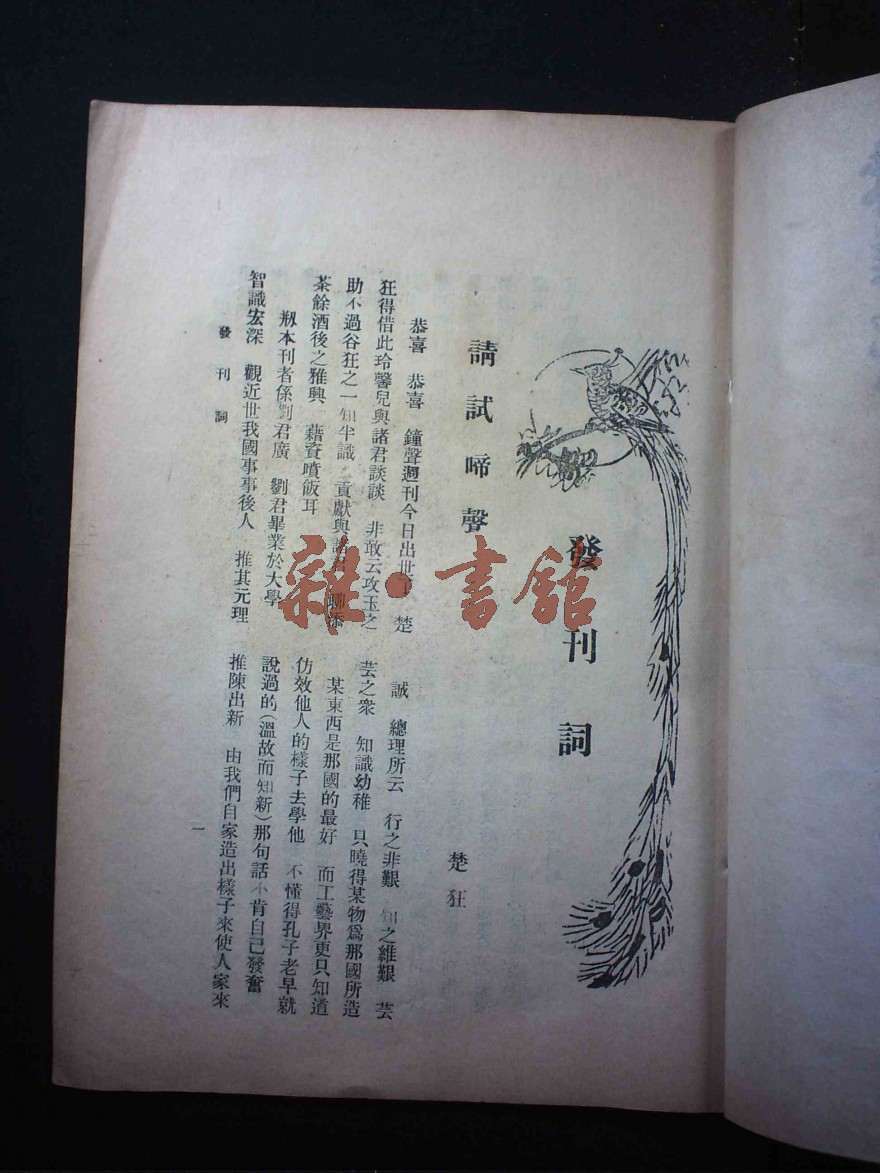 發刊詞
請試啼聲
楚狂
恭喜　恭喜　鐘聲週刊今日出世了　楚
狂得借此玲馨兒與諸君談談　非敢云攻玉之
助不過谷狂之一知半識　貢獻與諸君　聊添
茶餘酒後之雅興　藉資噴飯耳
剏本刊者係劉君廣　劉君畢業於大學
智識宏深　觀近世我國事事後人　推其元理
誠　總理所云　行之非艱　知之維艱　芸
芸之衆　知識幼稚　只曉得某物爲那國所造
某東西是那國的最好　而工藝界更只知道
仿效他人的樣子去學他　不懂得孔子老早就
說過的(溫故而知新)那句話不肯自己發奮
推陳出新　由我們自家造出樣子來使人家來
發刊詞
一
雜·書館